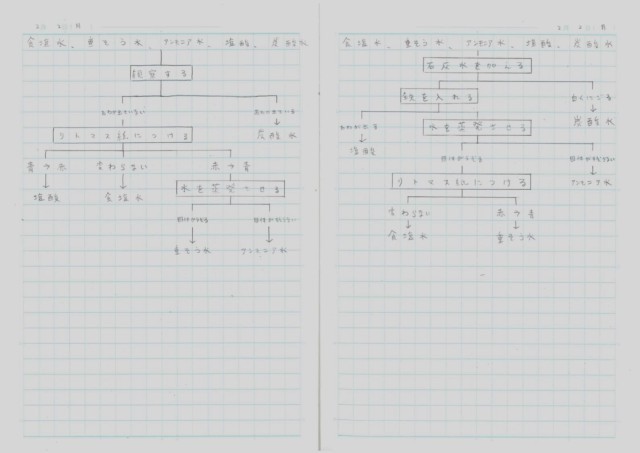 食塩水、重そう水、アンモニア水、塩酸、炭酸水
観察する
あわが出ていない
あわが出ている
リトマス紙につける
炭酸水
青→赤
変わらない
赤→青
塩酸
食塩水
水を蒸発させる
固体が残る
固体が残らない
重そう水
アンモニア水
食塩水、重そう水、アンモニア水、塩酸、炭酸水
石灰水を加える
鉄を入れる
白くにごる
あわが出る
水を蒸発させる
炭酸水
塩酸
固体が残る
固体が残らない
リトマス紙につける
アンモニア水
変わらない
赤→青
食塩水
重そう水